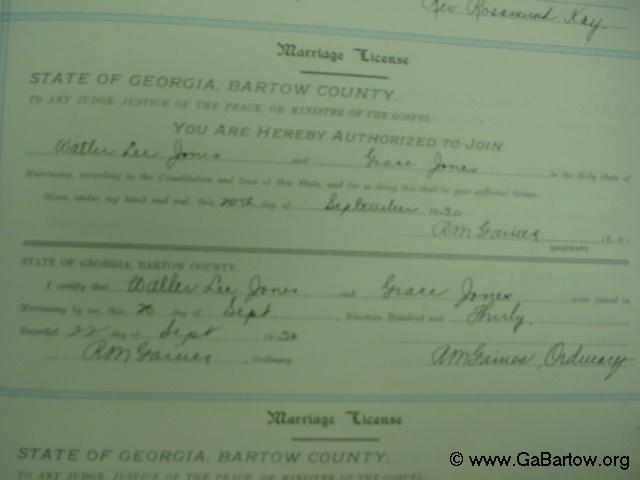 Rev. Rosamund Kay
Marriage License
STATE OF GEORGIA, BARTOW COUNTY.
TO ANY JUDGE, JUSTICE OF THE PEACE, OR MINISTER OF THE GOSPEL:
YOU ARE HEREBY AUTHORIZED TO JOIN
Walter Lee Jones and Grace Jones in the Holy State of
Matrimony, according to the Constitution and laws of this State, and for so doing this shall be your sufficient license.
Given under my hand and seal, this 20th day of September 1930
RM Gaines (L. S.)
ORDINARY
STATE OF GEORGIA, BARTOW COUNTY.
I certify that Walter Lee Jones and Grace Jones were joined in
Matrimony by me, this 20 day of Sept, Nineteen Hundred and Thirty.
Recorded, 22 day of Sept 1930
RM Gaines, Ordinary. RM Gaines, Ordinary
Marriage License
STATE OF GEORGIA, BARTOW COUNTY.
TO ANY JUDGE, JUSTICE OF THE PEACE, OR MINISTER OF THE GOSPEL:
© www.GaBartow.org